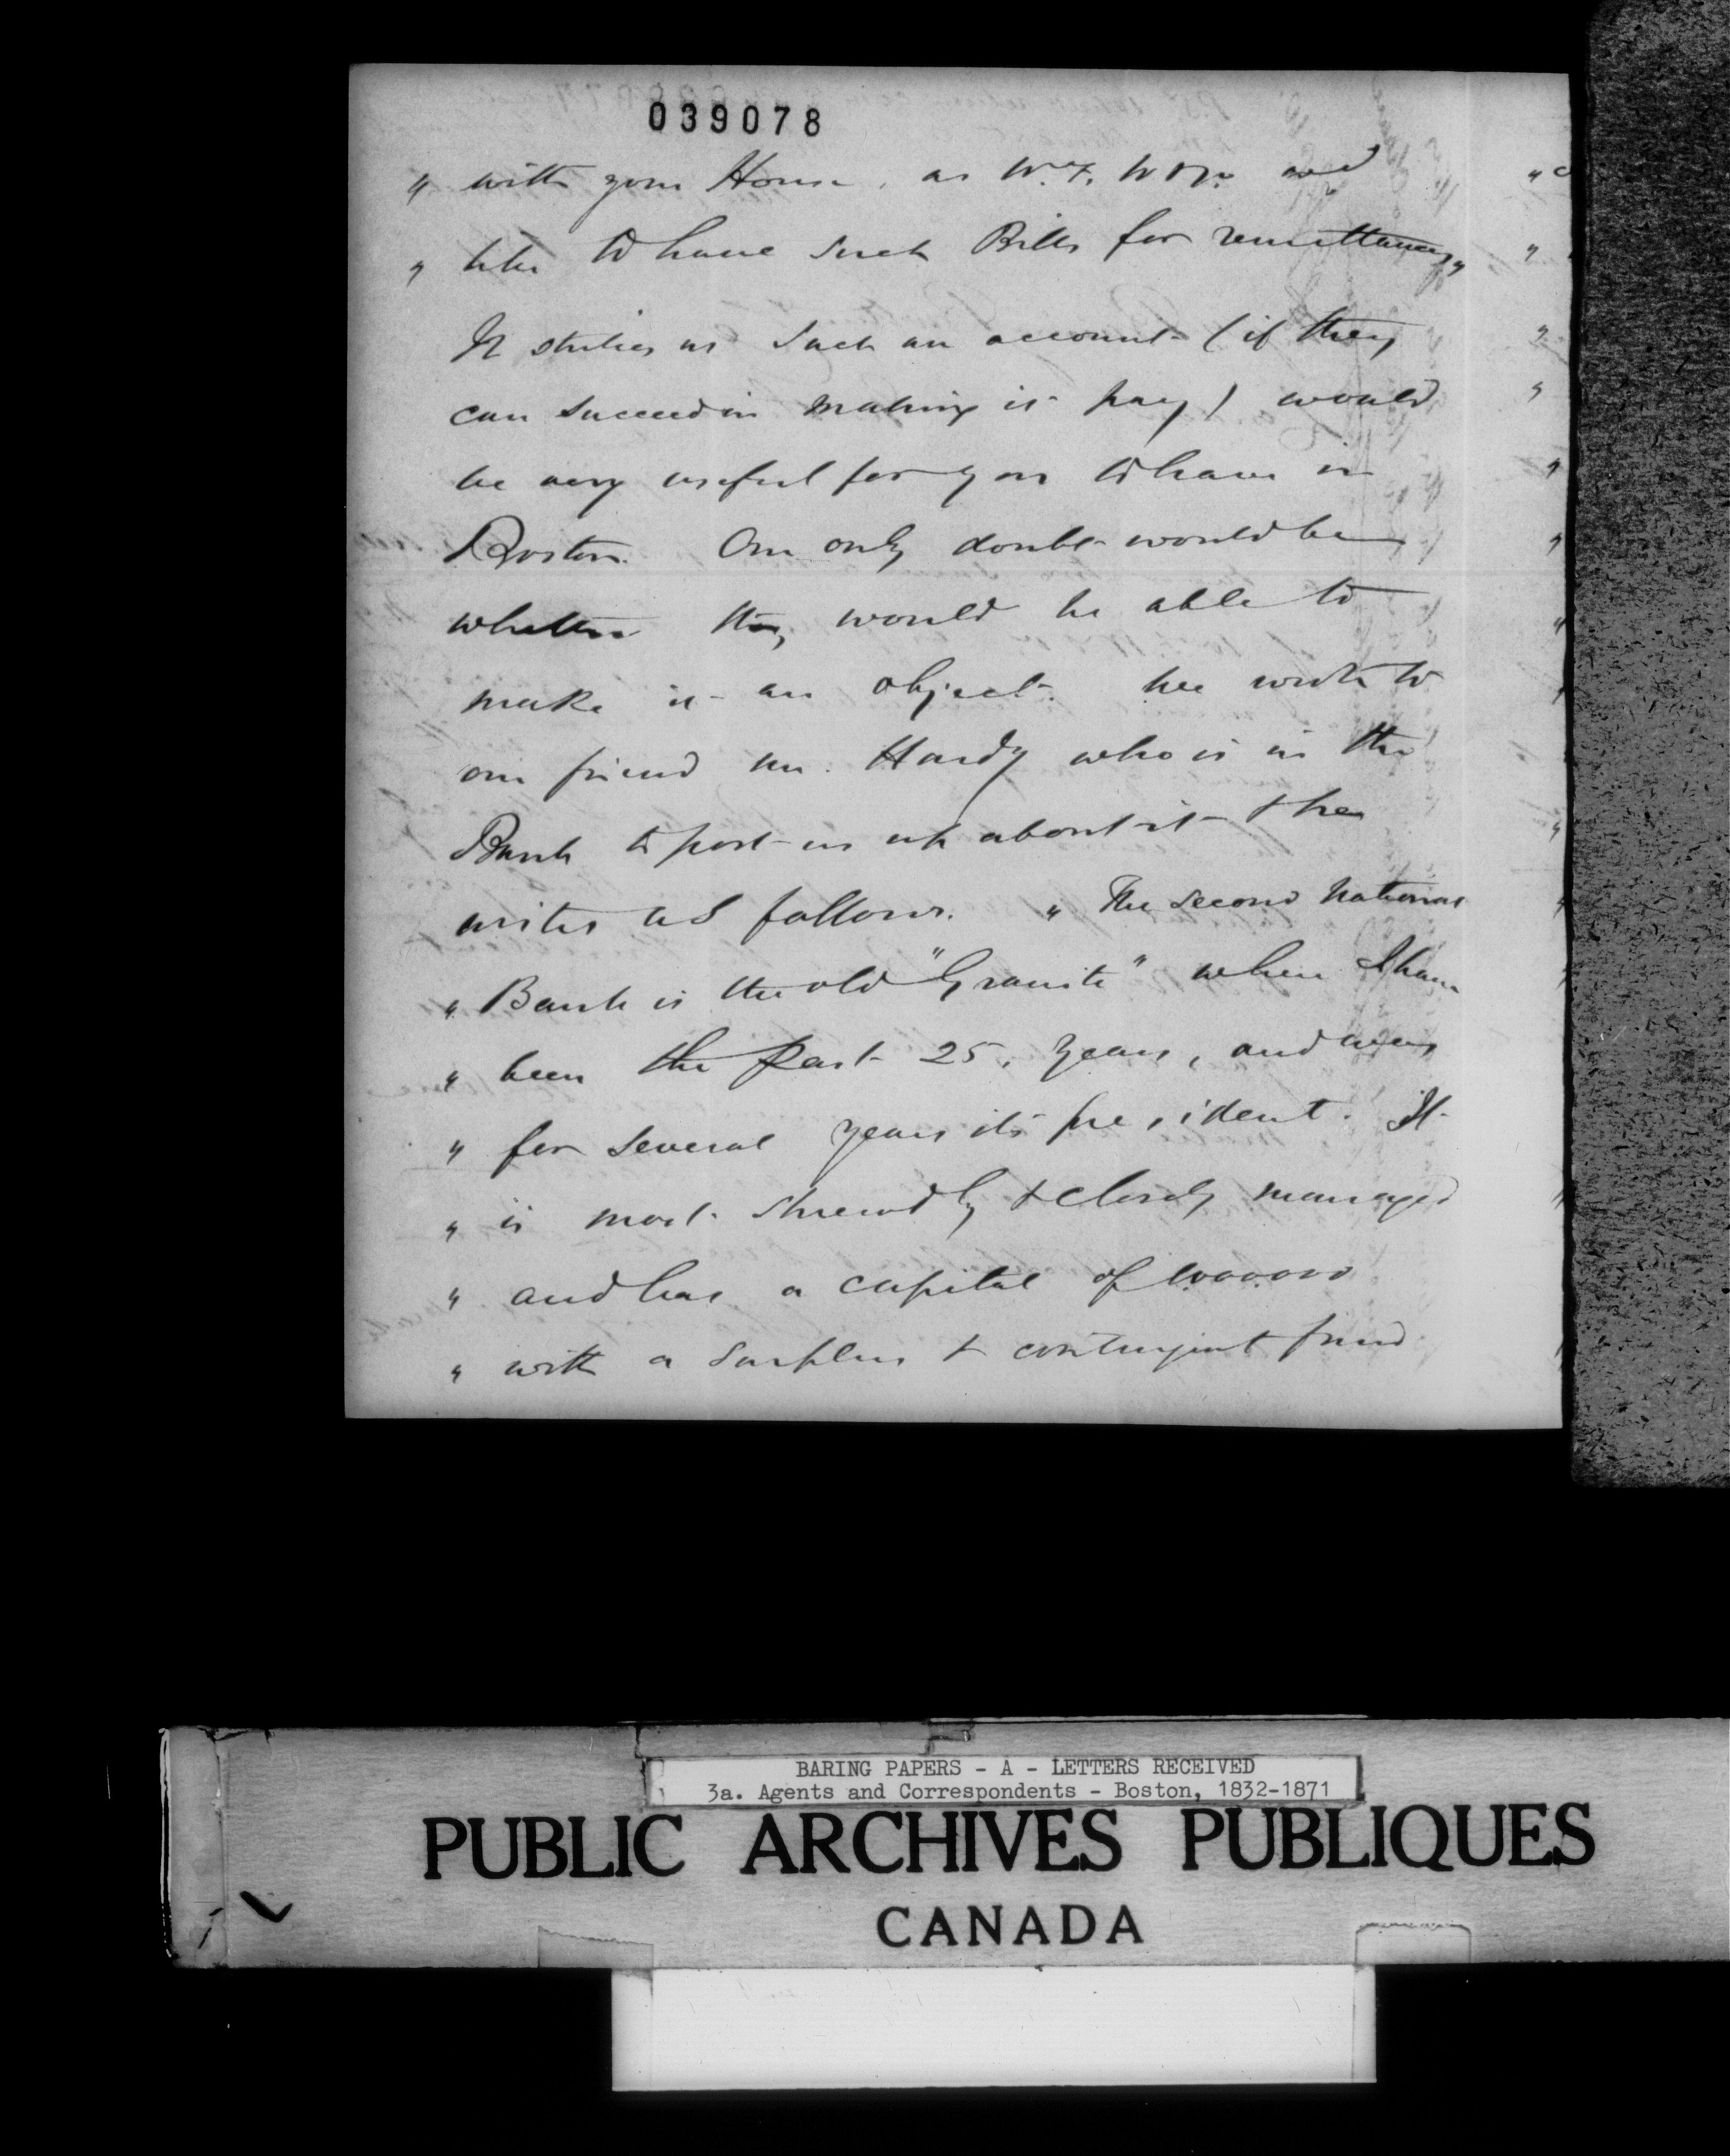 039078
" with your House, as W. F. W & Co. and
" like to have such Bills for remittances "
It strikes us such an account (if they
can succeed in making it pay) would
be very useful for you to have in
Boston. Our only doubt would be
whether they would be able to
make it an object. We wrote to
our friend Mr. Hardy who is in the
Bank to post us up about it & he
writes as follows. " The Second National
" Bank is the old "Granite" where I have
" been the past 25. years, and was
" for several years its president. It
" is most shrewdly & closely managed
" and has a capital of 1.000.000
" with a surplus & contingent fund
BARING PAPERS - A - LETTERS RECEIVED
3a. Agents and Correspondents - Boston, 1832-1871
PUBLIC ARCHIVES PUBLIQUES
CANADA